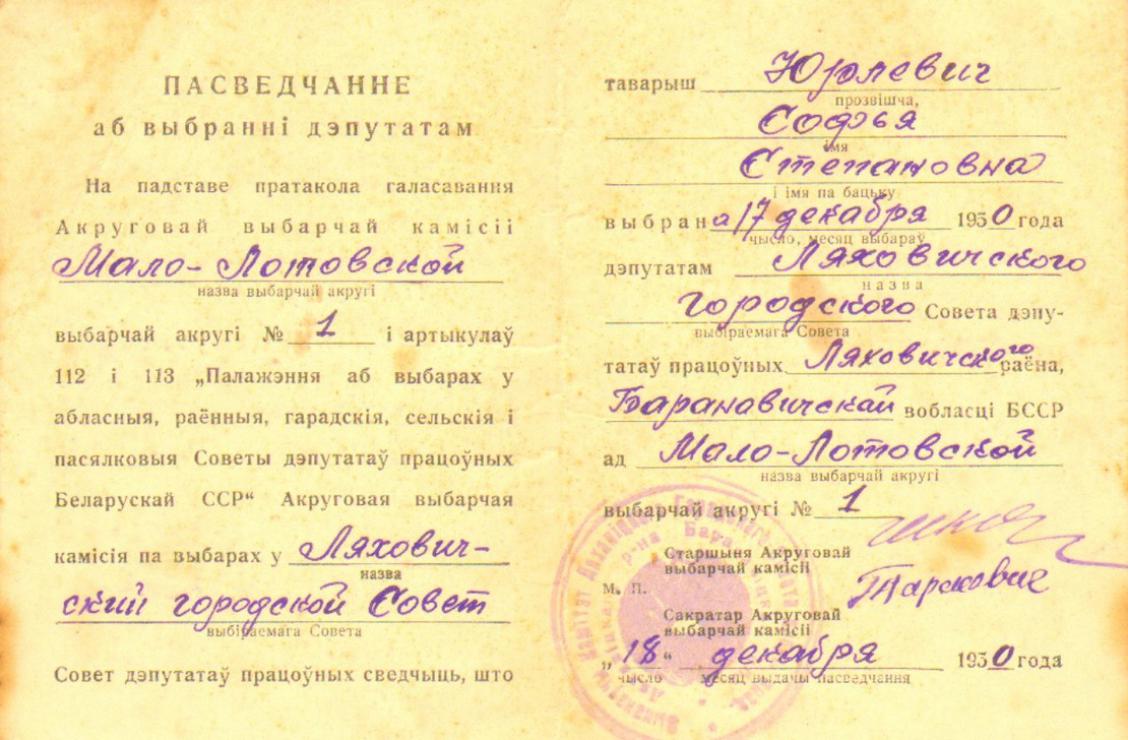 ПАСВЕДЧАННЕ
аб выбранні дэпутатам
На падставе пратакола галасавання
Акруговай выбарчай камісіі
Мало-Лотовской
назва выбарчай акругі
выбарчай акругі № 1 і артыкулаў
112 і 113 „Палажэння аб выбарах у
абласныя, раённыя, гарадскія, сельскія і
пасялковыя Советы дэпутатаў працоўных
Беларускай ССР“ Акруговая выбарчая
камісія па выбарах у Ляхович-
назва
ский городской Совет
выбіраемага Совета
Совет дэпутатаў працоўных сведчыць, што
таварыш Юрлевич
прозвішча,
Софья
імя
Степановна
і імя па бацьку
выбрана 17 декабря 1950 года
чысло, месяц выбараў
дэпутатам Ляховичского
назва
городского Совета дэпу-
выбіраемага Совета
татаў працоўных Ляховичского раёна,
Барановичской вобласці БССР
ад Мало-Лотовской
назва выбарчай акругі
выбарчай акругі № 1
Старшыня Акруговай
выбарчай камісіі
М. П.
Сакратар Акруговай
выбарчай камісіі
„18“ декабря 1950 года
чысло месяц выдачы пасведчання